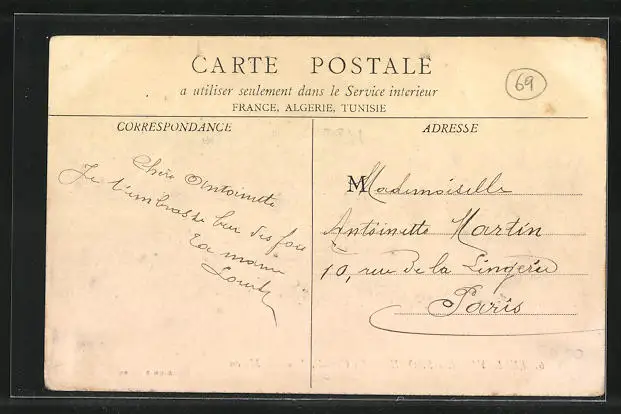 CARTE POSTALE
a utiliser seulement dans le Service interieur
FRANCE, ALGERIE, TUNISIE
69
CORRESPONDANCE
Chère Antoinette
Je t'embrasse bien des fois
Ta mami
ADRESSE
Mademoiselle
Antoinette Martin
10, rue de la Lingerie
Paris